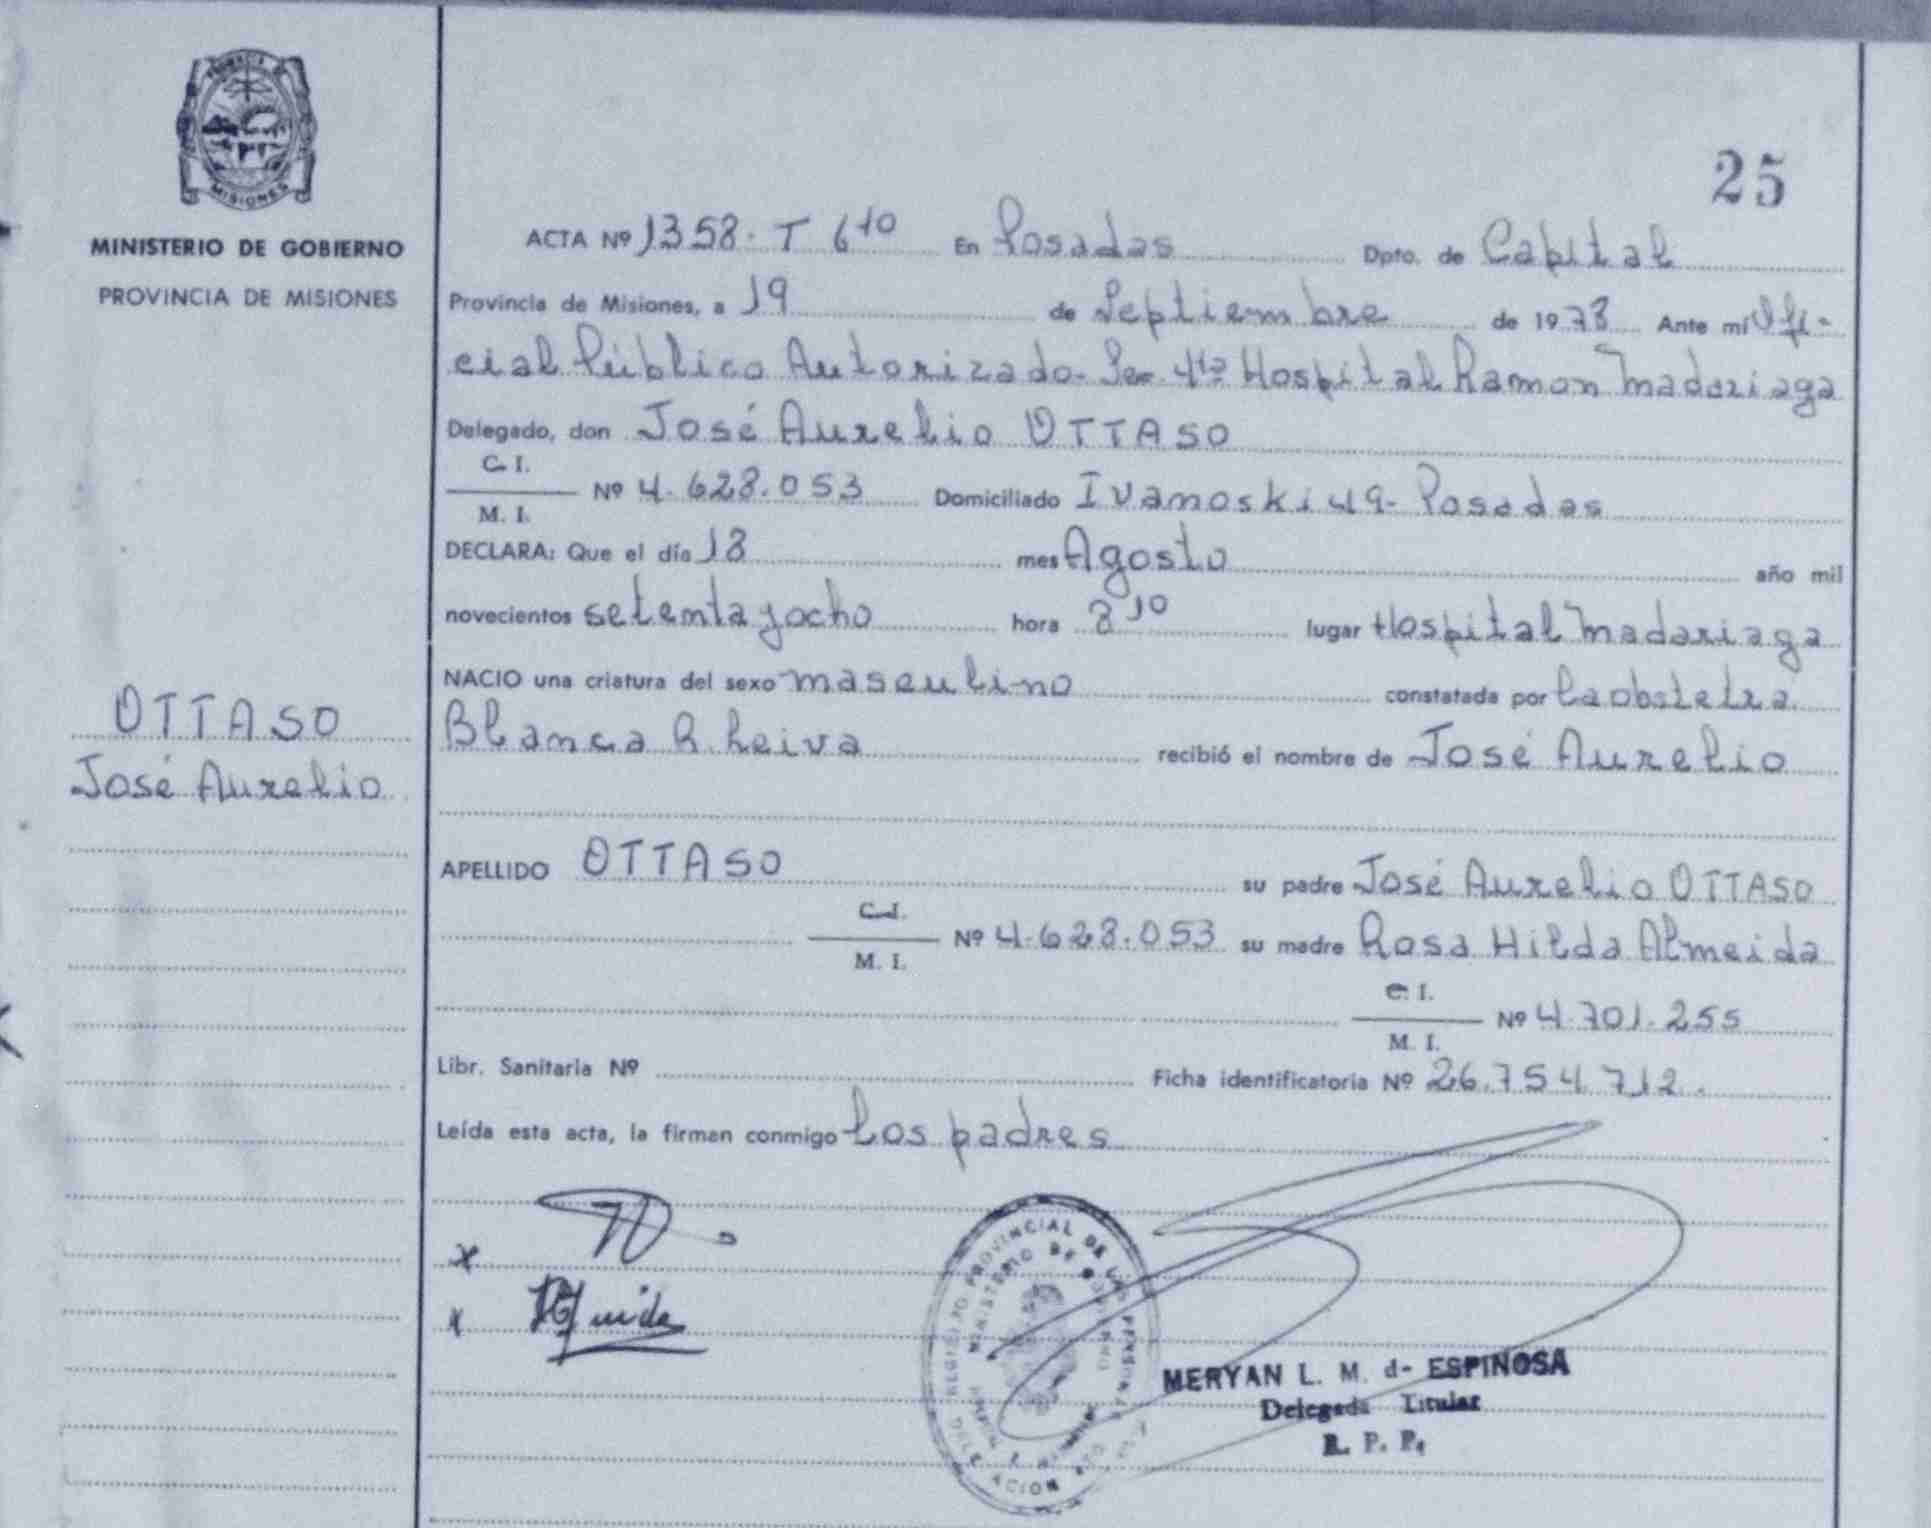 PROVINCIA DE
MISIONES
MINISTERIO DE GOBIERNO
PROVINCIA DE MISIONES
OTTASO
José Aurelio
25
ACTA Nº 1358. T 6to En Posadas Dpto. de Capital
Provincia de Misiones, a 19 de Septiembre de 1978 Ante mí Ofi-
cial Público Autorizado- Sec. 4ta Hospital Ramon Madariaga
Delegado, don José Aurelio OTTASO
C. I.
Nº 4.628.053 Domiciliado Ivanoski 49- Posadas
M. I.
DECLARA: Que el día 18 mes Agosto año mil
novecientos setenta y ocho hora 8 10 lugar Hospital Madariaga
NACIO una criatura del sexo masculino constatada por la obstetra
Blanca R. Leiva recibió el nombre de José Aurelio
APELLIDO OTTASO su padre José Aurelio OTTASO
C. I.
Nº 4.628.053 su madre Rosa Hilda Almeida
M. I.
C. I.
Nº 4.701.255
M. I.
Libr. Sanitaria Nº Ficha identificatoria Nº 26.754.712.
Leída esta acta, la firman conmigo los padres
x
x
REGISTRO PROVINCIAL DE LAS PERSONAS
MINISTERIO DE GOBIERNO
MERYAN L. M. d- ESPINOSA
Delegada Titular
R. P. P.